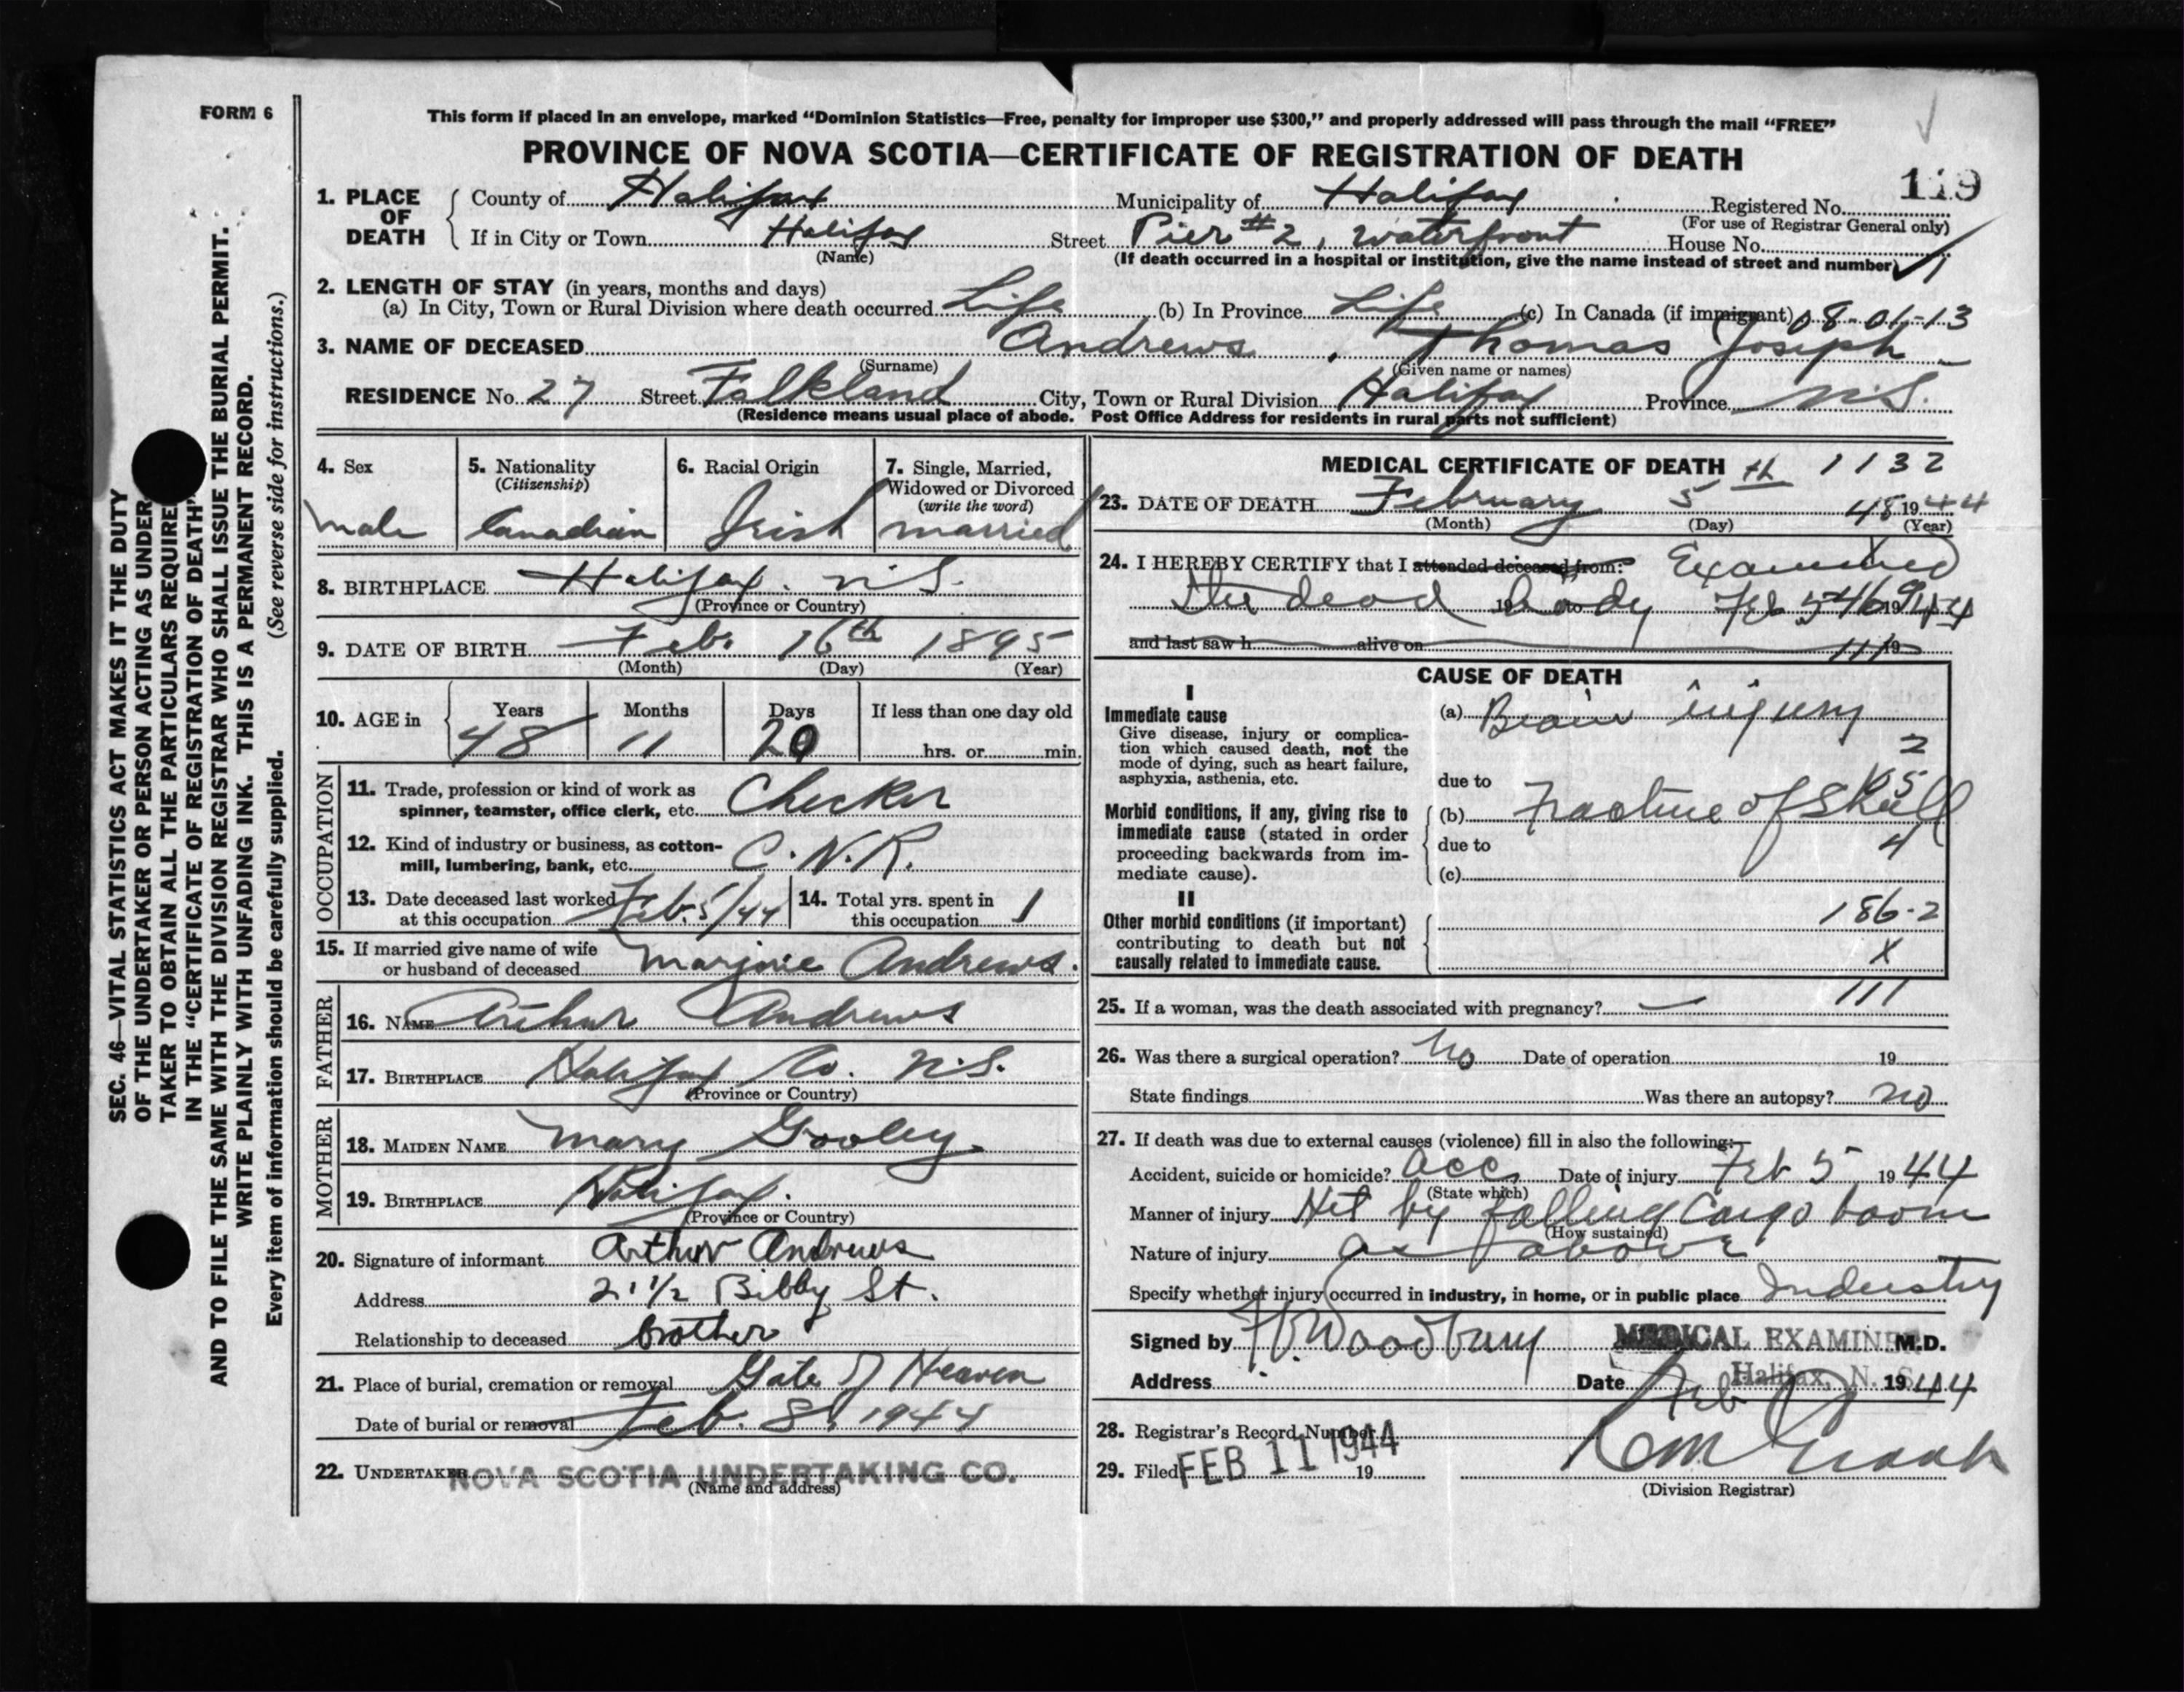 FORM 6
This form if placed in an envelope, marked “Dominion Statistics—Free, penalty for improper use $300,” and properly addressed will pass through the mail “FREE”
PROVINCE OF NOVA SCOTIA—CERTIFICATE OF REGISTRATION OF DEATH
119
1. PLACE OF DEATH
County of Halifax Municipality of Halifax Registered No.
(For use of Registrar General only)
If in City or Town Halifax Street Pier #2, Waterfront House No.
(Name) (If death occurred in a hospital or institution, give the name instead of street and number)
2. LENGTH OF STAY (in years, months and days)
(a) In City, Town or Rural Division where death occurred Life (b) In Province Life (c) In Canada (if immigrant) 08-01-13
3. NAME OF DECEASED Andrews, Thomas Joseph
(Surname) (Given name or names)
RESIDENCE No. 27 Street Falkland City, Town or Rural Division Halifax Province N.S.
(Residence means usual place of abode. Post Office Address for residents in rural parts not sufficient)
4. Sex
male
5. Nationality
(Citizenship)
Canadian
6. Racial Origin
Irish
7. Single, Married,
Widowed or Divorced
(write the word)
married
8. BIRTHPLACE Halifax. N.S.
(Province or Country)
9. DATE OF BIRTH Feb. 16th 1895
(Month) (Day) (Year)
10. AGE in Years Months Days If less than one day old
48 11 20 hrs. or min.
OCCUPATION
11. Trade, profession or kind of work as
spinner, teamster, office clerk, etc. Checker
12. Kind of industry or business, as cotton-
mill, lumbering, bank, etc. C.N.R.
13. Date deceased last worked
at this occupation Feb. 5/44
14. Total yrs. spent in
this occupation 1
15. If married give name of wife
or husband of deceased Marjorie Andrews.
FATHER
16. NAME Arthur Andrews
17. BIRTHPLACE Halifax Co. N.S.
(Province or Country)
MOTHER
18. MAIDEN NAME Mary Gooley.
19. BIRTHPLACE Halifax.
(Province or Country)
20. Signature of informant Arthur Andrews
Address 21 1/2 Bibby St.
Relationship to deceased brother
21. Place of burial, cremation or removal Gate of Heaven
Date of burial or removal Feb. 8, 1944
22. UNDERTAKER NOVA SCOTIA UNDERTAKING CO.
(Name and address)
MEDICAL CERTIFICATE OF DEATH 1132
23. DATE OF DEATH February 5th 48 1944
(Month) (Day) (Year)
24. I HEREBY CERTIFY that I attended deceased from: Examined
the dead body Feb 5 1944
and last saw h alive on 19
CAUSE OF DEATH
I
Immediate cause
Give disease, injury or complica-
tion which caused death, not the
mode of dying, such as heart failure,
asphyxia, asthenia, etc.
(a) Brain injury
2
due to
Morbid conditions, if any, giving rise to
immediate cause (stated in order
proceeding backwards from im-
mediate cause).
(b) Fracture of Skull
due to 4
(c)
II
Other morbid conditions (if important)
contributing to death but not
causally related to immediate cause.
186-2
X
111
25. If a woman, was the death associated with pregnancy? —
26. Was there a surgical operation? No Date of operation 19
State findings Was there an autopsy? no
27. If death was due to external causes (violence) fill in also the following:—
Accident, suicide or homicide? acc. Date of injury Feb 5, 1944
(State which)
Manner of injury Hit by falling Cargo boom
(How sustained)
Nature of injury As above
Specify whether injury occurred in industry, in home, or in public place Industry
Signed by Woodbury MEDICAL EXAMINER M.D.
Address Date Halifax, N. S. Feb 1944
28. Registrar's Record Number
29. Filed FEB 11 1944 19
(Division Registrar)
SEC. 46—VITAL STATISTICS ACT MAKES IT THE DUTY
OF THE UNDERTAKER OR PERSON ACTING AS UNDER
TAKER TO OBTAIN ALL THE PARTICULARS REQUIRE
IN THE “CERTIFICATE OF REGISTRATION OF DEATH”
AND TO FILE THE SAME WITH THE DIVISION REGISTRAR WHO SHALL ISSUE THE BURIAL PERMIT.
WRITE PLAINLY WITH UNFADING INK. THIS IS A PERMANENT RECORD.
Every item of information should be carefully supplied. (See reverse side for instructions.)